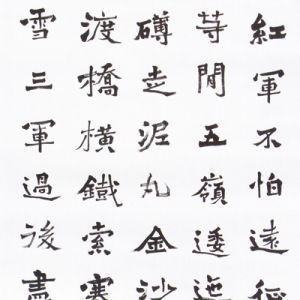 紅軍不怕遠征
等閒五嶺逶迤
礴走泥丸金沙
渡橋橫鐵索寒
雪三軍過後盡